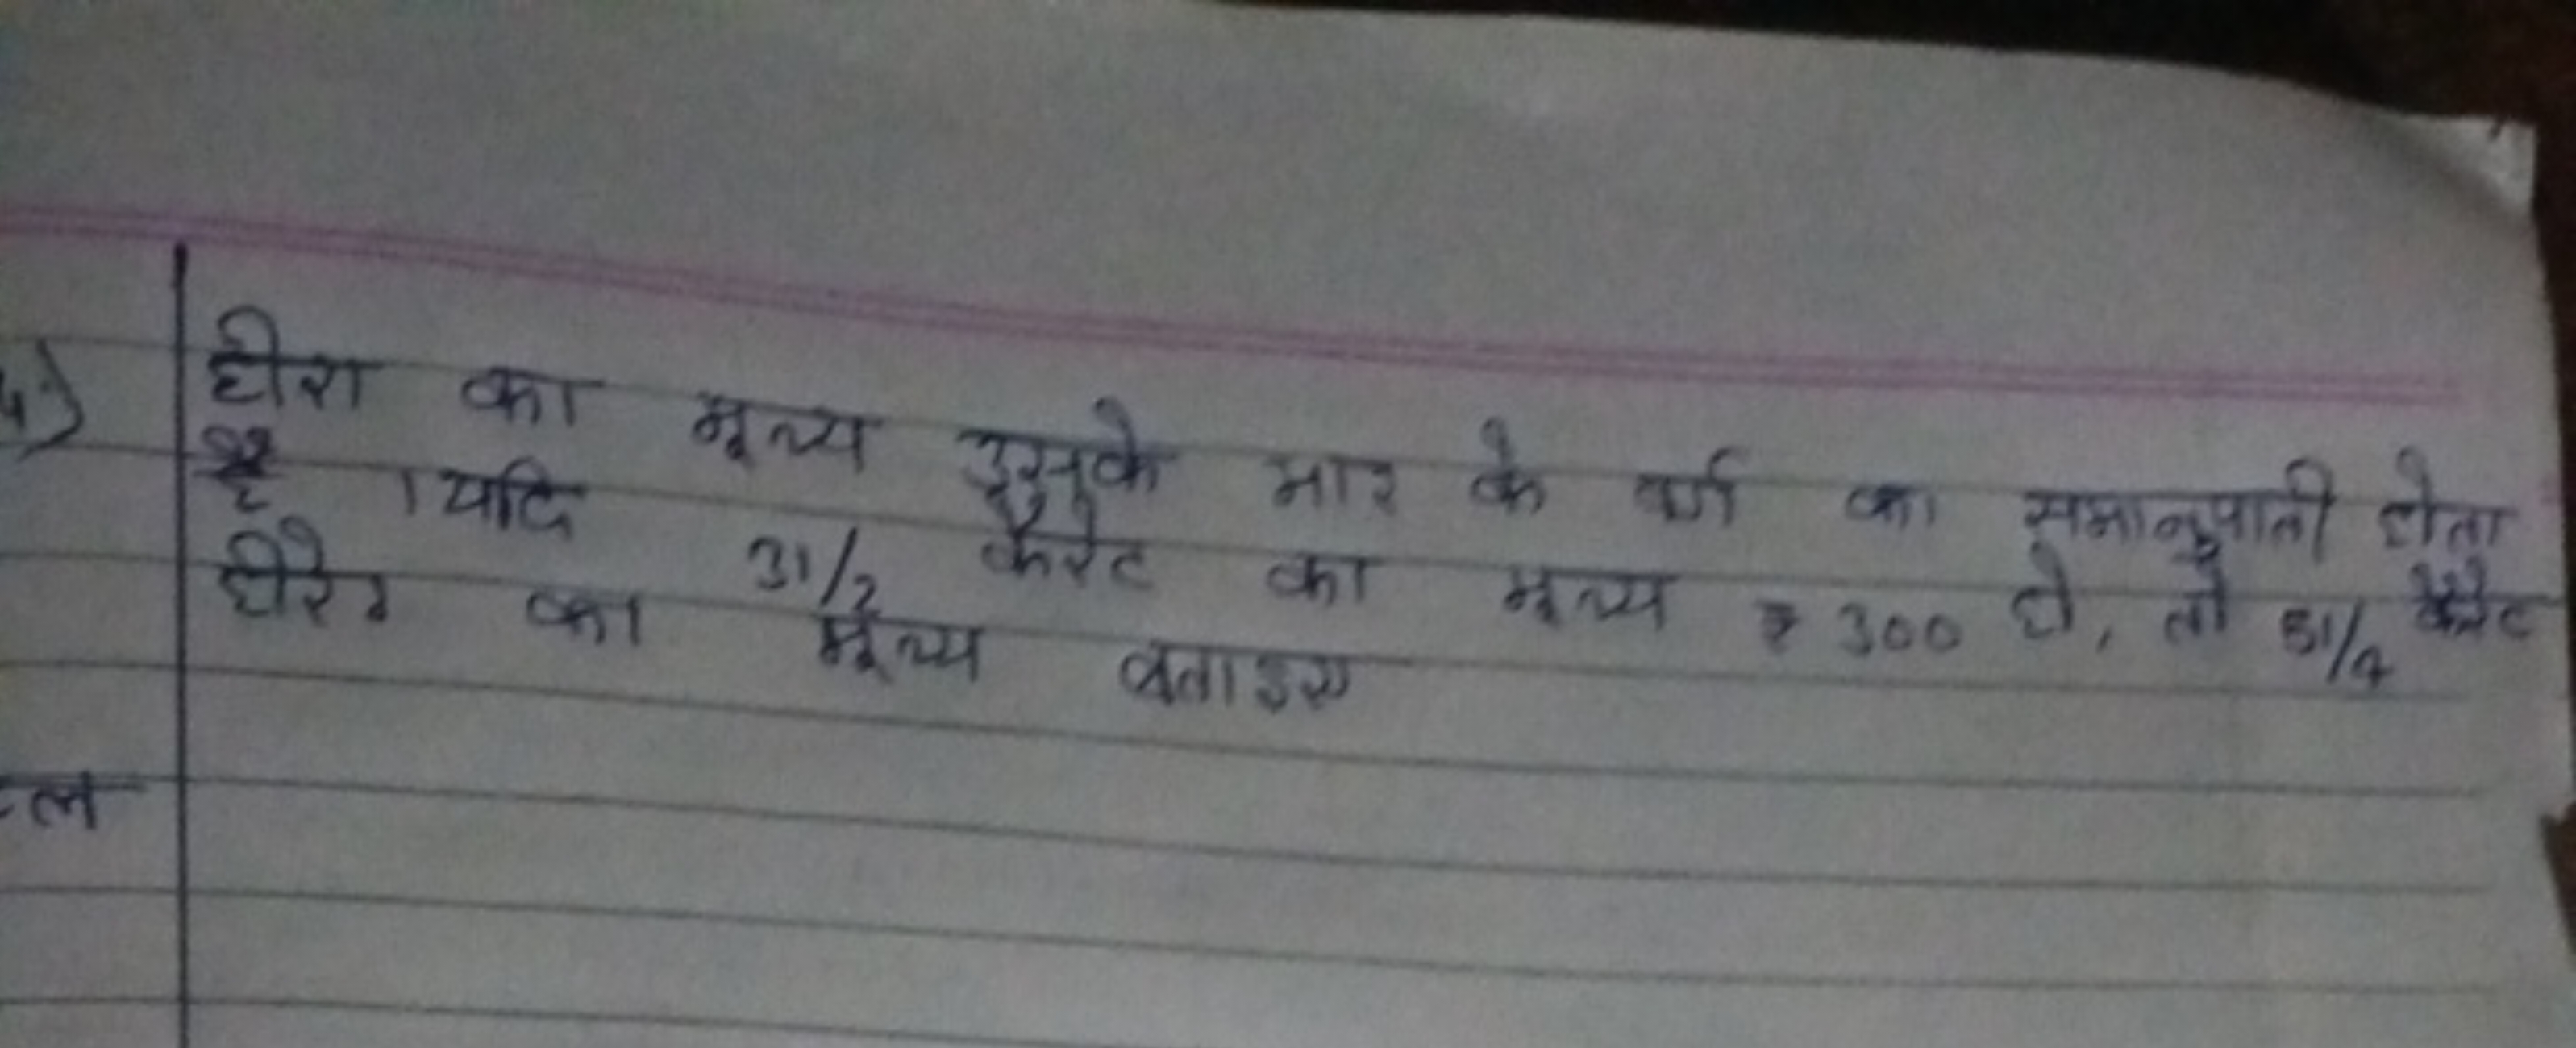 4) हीरा का मूल्य उसके भार के वर्ग का समानुपाती होता
है । यदि 31/2 कैरेट का मूल्य ₹ 300 हो, तो 51/4 कैरेट
हीरे का मूल्य बताइए